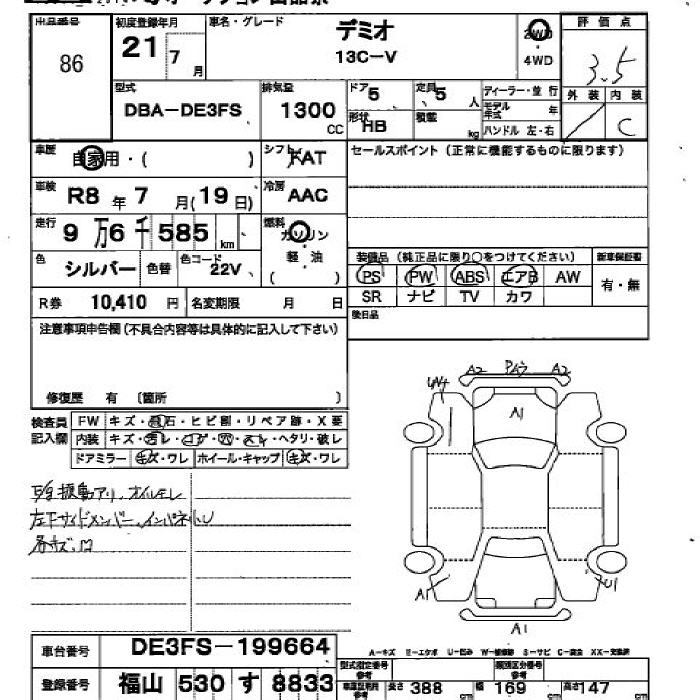 出品番号 初度登録年月 車名・グレード 評価点
86 21 7月 デミオ 13C-V 2WD ・ 4WD 3.5
型式 DBA-DE3FS 排気量 1300 CC ドア 5 定員 5 人 ディーラー・並行 外装 内装
形状 HB 積載 kg モデル年式 年 C
ハンドル 左・右
車歴 自家用・( ) シフト FAT セールスポイント(正常に機能するものに限ります)
車検 R8 年 7 月(19日) 冷房 AAC
走行 9万6千585km 燃料 ガソリン
軽・油
( )
色 シルバー 色替 色コード 22V 装備品(純正品に限り○をつけてください) 新車保証書
PS PW ABS エアB AW 有・無
R券 10,410 円 名変期限 月 日 SR ナビ TV カワ
注意事項申告欄(不具合内容等は具体的に記入して下さい) 後日品
修復歴 有 〔箇所 〕
検査員記入欄 FW キズ・飛石・ヒビ割・リペア跡・X要
内装 キズ・汚レ・コゲ・穴・スレ・ヘタリ・破レ
ドアミラー キズ・ワレ ホイール・キャップ キズ・ワレ
オイルモレ
左下サイドメンバー、インパネ
各キズ、凹
A2 A2
A1
A1 U1
A1
車台番号 DE3FS-199664
A-キズ E-エクボ U-凹み W-補修跡 S-サビ C-腐食 XX-交換済
登録番号 福山 530 す 8833 型式指定番号 参考 類別区分番号 参考
長さ 388 cm 幅 169 cm 高さ 147 cm